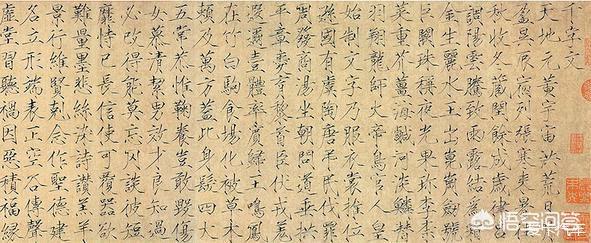 千字文
天地元黃宇宙洪荒日月
盈昃辰宿列張寒來暑往
秋收冬藏閏餘成歲律呂
調陽雲騰致雨露結為霜
金生麗水玉出崑崗劍號
巨闕珠稱夜光果珍李柰
菜重芥薑海鹹河淡鱗潛
羽翔龍師火帝鳥官人皇
始制文字乃服衣裳推位
遜國有虞陶唐弔民伐罪
周發商湯坐朝問道垂拱
平章愛育黎首臣伏戎羌
遐邇壹體率賓歸王鳴鳳
在竹白駒食場化被草木
賴及萬方蓋此身髮四大
五常恭惟鞠養豈敢毀傷
女慕清潔男效才良知過
必改得能莫忘罔談彼短
靡恃己長信使可覆器欲
難量墨悲絲染詩讚羔羊
景行維賢剋念作聖德建
名立形端表正空谷傳聲
虛堂習聽禍因惡積福緣
悟空问答